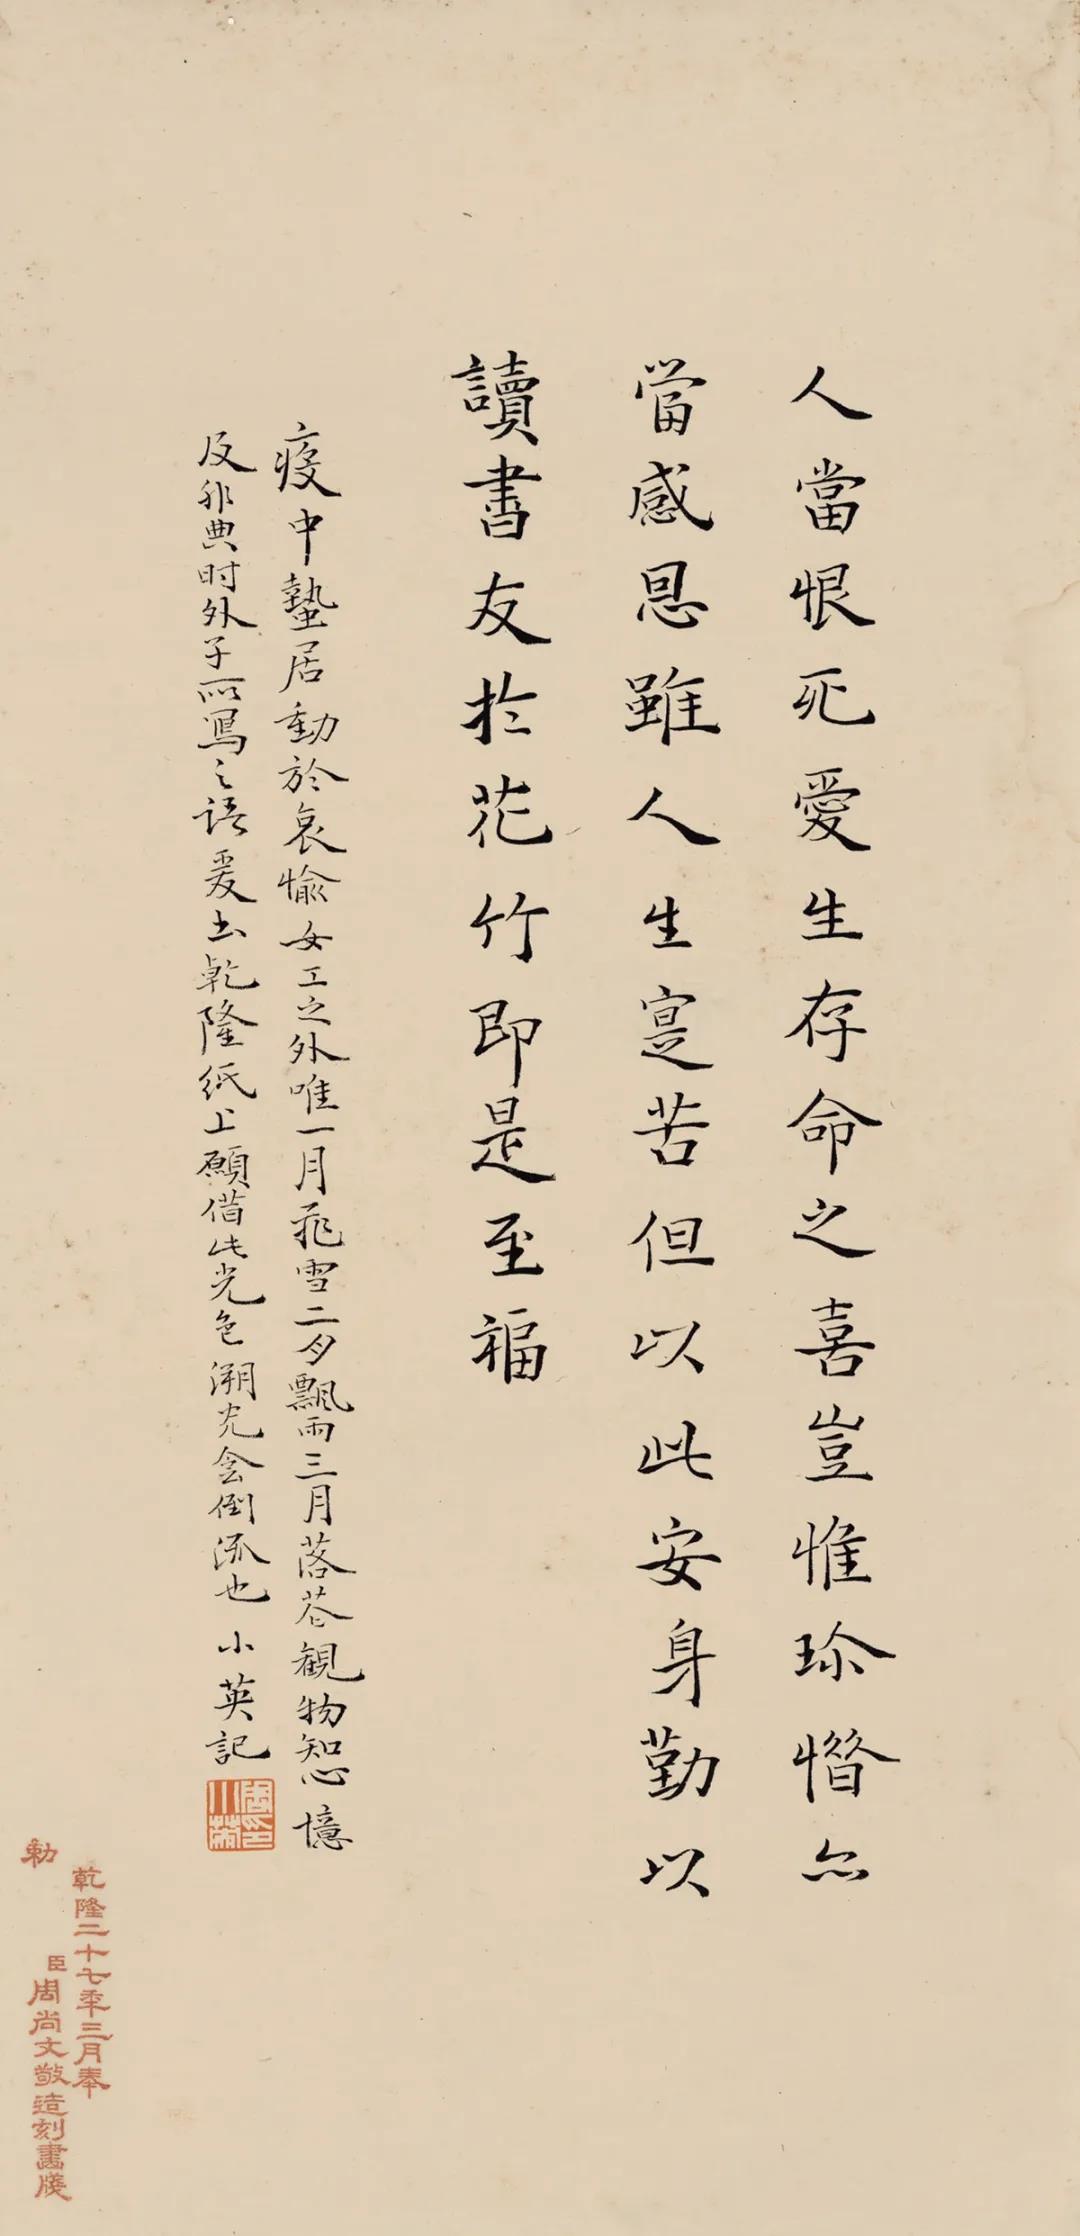 人當恨死愛生存命之喜豈惟珎惜亦
當感恩雖人生寔苦但以此安身勤以
讀書友於花竹即是至福
疫中蟄居動於哀愉女工之外唯一月飛雪二月飄雨三月落花観物知心憶
及非典时外子所寫之语爰书乾隆紙上願借此光色溯光会倒流也 小英記
周小英印
勅
乾隆二十七年三月奉
臣周尚文敬造刻畫牋